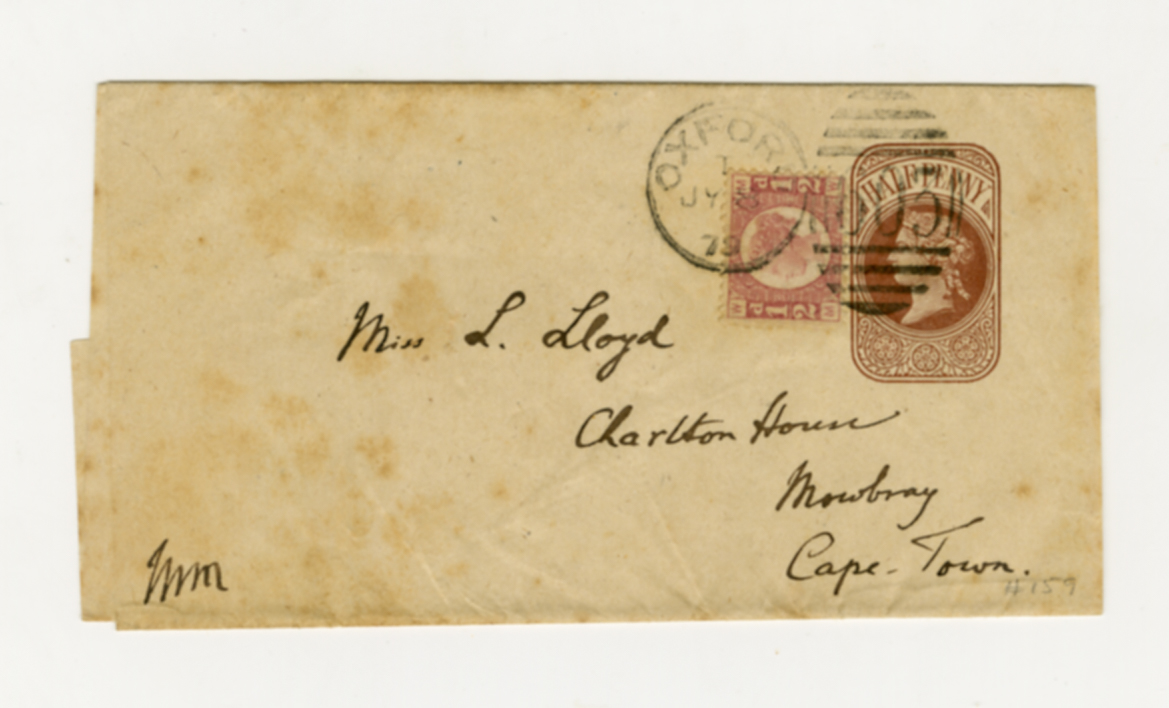 OXFORD
JY
79
HALFPENNY
Miss L. Lloyd
Charlton House
Mowbray
Cape-Town.
4159